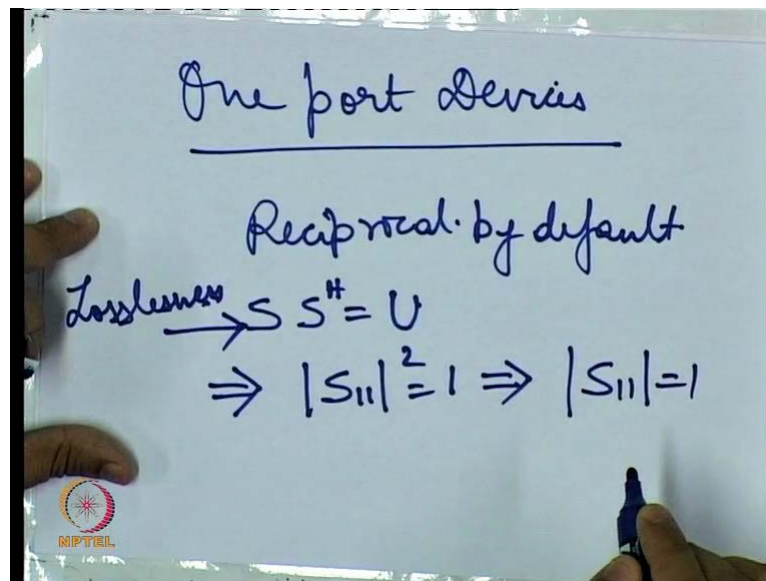 One port Devices
Reciprocal by default
Losslessness → S Sᴴ = U
⇒ |S₁₁|² = 1 ⇒ |S₁₁| = 1
NPTEL